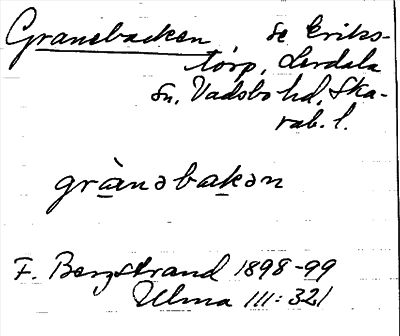 Granebacken se Eriks-
torp, Lerdala
sn, Vadsbo hd, Ska-
rab. l.
grànəbakən
F. Bergstrand 1898-99
Ulma 111:321